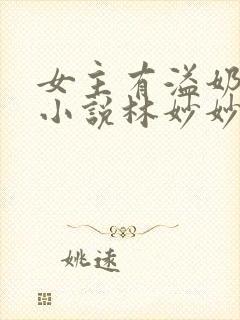 女主有溢奶
小说林妙妙
姚远